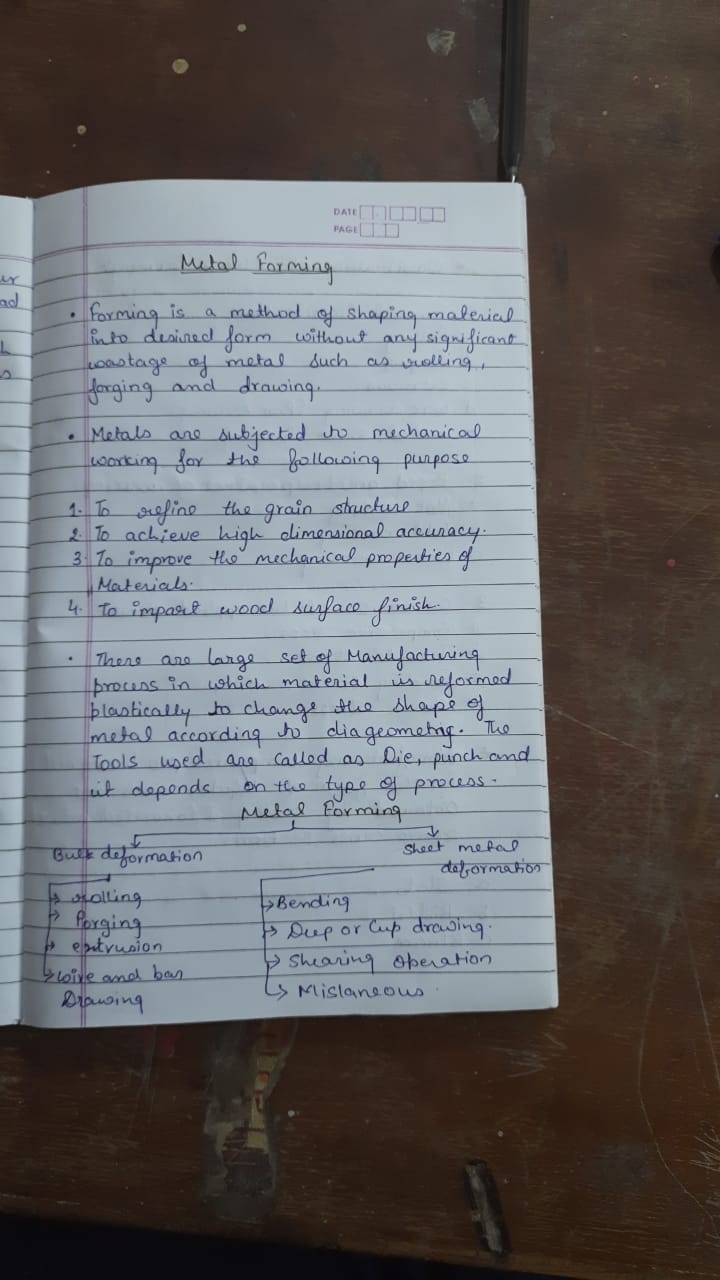 DATE
PAGE
Metal Forming
• Forming is a method of shaping material
into desired form without any significant
wastage of metal such as rolling,
forging and drawing.
• Metals are subjected to mechanical
working for the following purpose
1. To refine the grain structure
2. To achieve high dimensional accuracy.
3. To improve the mechanical properties of
Materials.
4. To impart wood surface finish.
• There are large set of Manufacturing
process in which material is reformed
plastically to change the shape of
metal according to diageometry. The
Tools used are called as Die, punch and
it depends on the type of process.
Metal Forming
Bulk deformation
→ rolling
→ Forging
→ extrusion
→ wire and bar
Drawing
Sheet metal
deformation
→ Bending
→ Deep or Cup drawing.
→ Shearing operation
→ Mislaneous